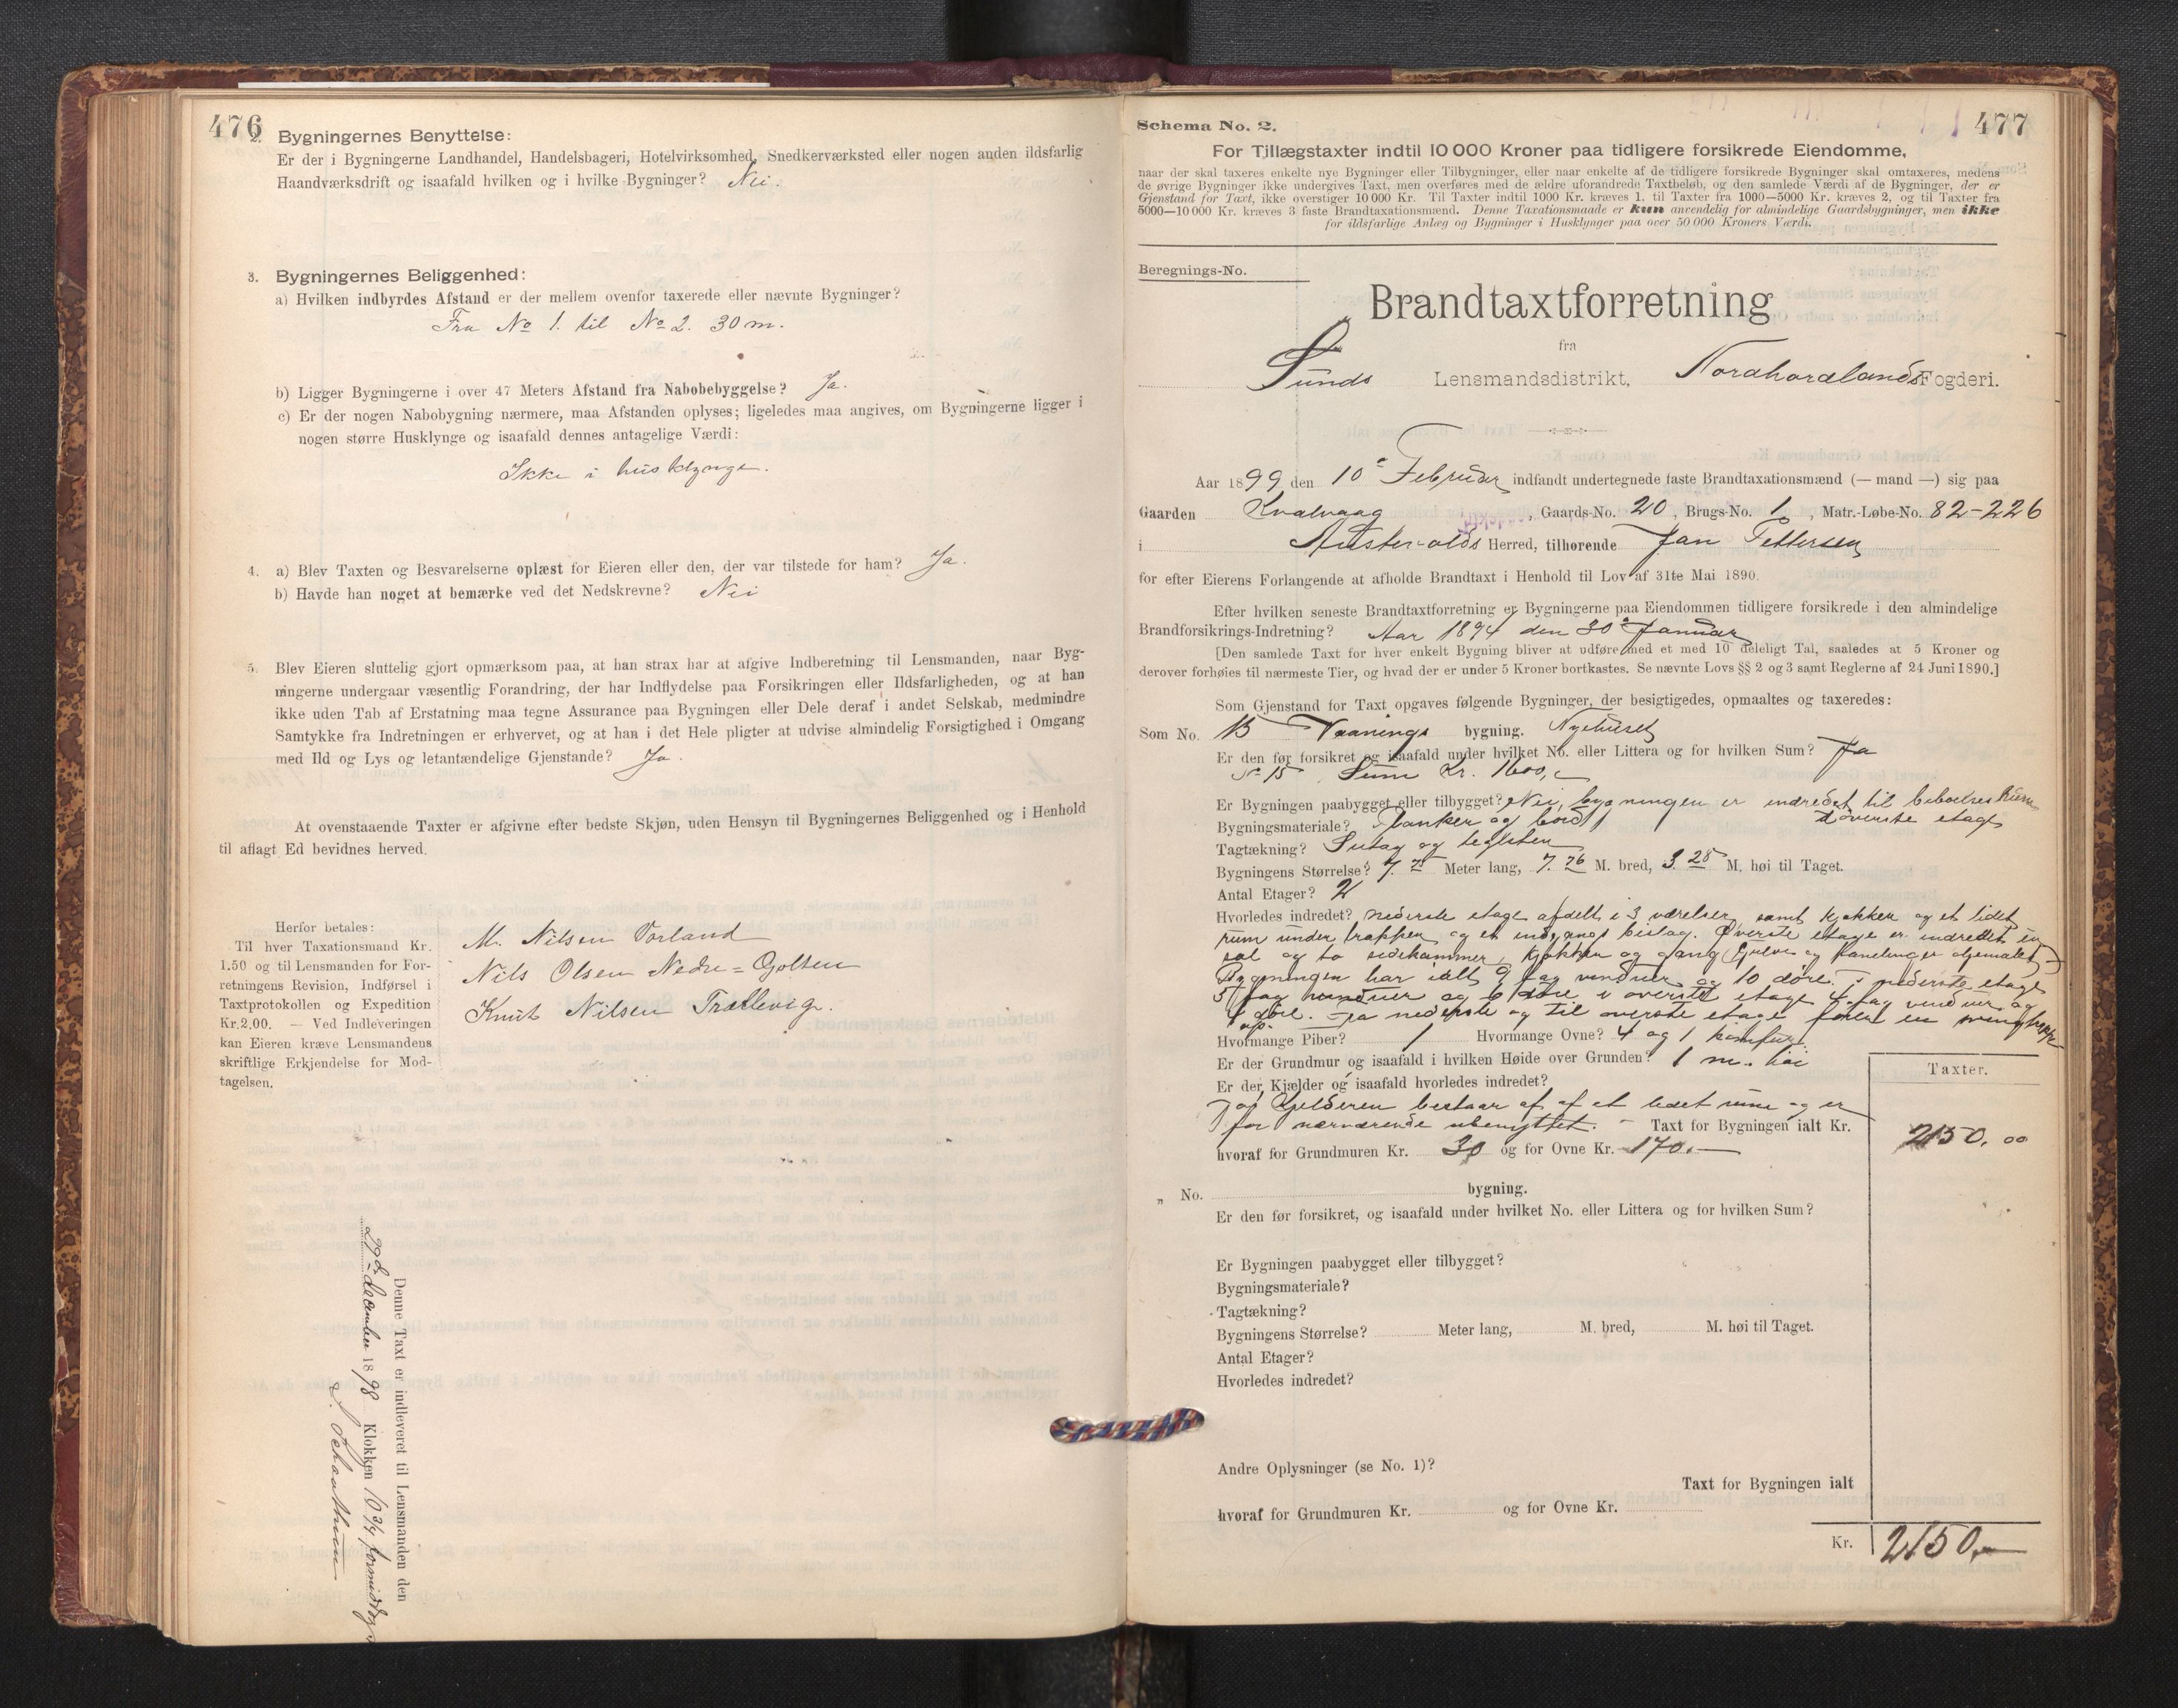 476
2. Bygningernes Benyttelse:
Er der i Bygningerne Landhandel, Handelsbageri, Hotelvirksomhed, Snedkerværksted eller nogen anden ildsfarlig
Haandværksdrift og isaafald hvilken og i hvilke Bygninger? Nei.
3. Bygningernes Beliggenhed:
a) Hvilken indbyrdes Afstand er der mellem ovenfor taxerede eller nævnte Bygninger?
Fra No 1. til No 2. 30 m.
b) Ligger Bygningerne i over 47 Meters Afstand fra Nabobebyggelse? Ja.
c) Er der nogen Nabobygning nærmere, maa Afstanden oplyses; ligeledes maa angives, om Bygningerne ligger i
nogen større Husklynge og isaafald dennes antagelige Værdi:
Ikke i husklynge.
4. a) Blev Taxten og Besvarelserne oplæst for Eieren eller den, der var tilstede for ham? Ja.
b) Havde han noget at bemærke ved det Nedskrevne? Nei
5. Blev Eieren sluttelig gjort opmærksom paa, at han strax har at afgive Indberetning til Lensmanden, naar Byg-
ningerne undergaar væsentlig Forandring, der har Indflydelse paa Forsikringen eller Ildsfarligheden, og at han
ikke uden Tab af Erstatning maa tegne Assurance paa Bygningen eller Dele deraf i andet Selskab, medmindre
Samtykke fra Indretningen er erhvervet, og at han i det Hele pligter at udvise almindelig Forsigtighed i Omgang
med Ild og Lys og letantændelige Gjenstande? Ja.
At ovenstaaende Taxter er afgivne efter bedste Skjøn, uden Hensyn til Bygningernes Beliggenhed og i Henhold
til aflagt Ed bevidnes herved.
Herfor betales:
Til hver Taxationsmand Kr.
1.50 og til Lensmanden for For-
retningens Revision, Indførsel i
Taxtprotokollen og Expedition
Kr. 2.00. — Ved Indleveringen
kan Eieren kræve Lensmandens
skriftlige Erkjendelse for Mod-
tagelsen.
M. Nilsen Vorland
Nils Olsen Nedre=Golten
Knut Nilsen Trællevig.
Denne Taxt er indleveret til Lensmanden den
22d december 1898 Klokken 10 3/4 formiddag
477
Schema No. 2.
For Tillægstaxter indtil 10 000 Kroner paa tidligere forsikrede Eiendomme,
naar der skal taxeres enkelte nye Bygninger eller Tilbygninger, eller naar enkelte af de tidligere forsikrede Bygninger skal omtaxeres, medens
de øvrige Bygninger ikke undergives Taxt, men overføres med de ældre uforandrede Taxtbeløb, og den samlede Værdi af de Bygninger, der er
Gjenstand for Taxt, ikke overstiger 10 000 Kr. Til Taxter indtil 1000 Kr. kræves 1, til Taxter fra 1000—5000 Kr. kræves 2, og til Taxter fra
5000—10 000 Kr. kræves 3 faste Brandtaxationsmænd. Denne Taxationsmaade er kun anvendelig for almindelige Gaardsbygninger, men ikke
for ildsfarlige Anlæg og Bygninger i Husklynger paa over 50 000 Kroners Værdi.
Beregnings-No.
Brandtaxtforretning
fra
Sunds Lensmandsdistrikt, Nordhordlands Fogderi.
Aar 1899 den 10de Februar indfandt undertegnede faste Brandtaxationsmænd (— mand —) sig paa
Gaarden Kvalvaag, Gaards-No. 20, Brugs-No. 1, Matr.-Løbe-No. 82-226
i Austevolds Herred, tilhørende Jan Pettersen
for efter Eierens Forlangende at afholde Brandtaxt i Henhold til Lov af 31te Mai 1890.
Efter hvilken seneste Brandtaxtforretning er Bygningerne paa Eiendommen tidligere forsikrede i den almindelige
Brandforsikrings-Indretning? Aar 1894 den 30te Januar
[Den samlede Taxt for hver enkelt Bygning bliver at udføre med et med 10 deleligt Tal, saaledes at 5 Kroner og
derover forhøies til nærmeste Tier, og hvad der er under 5 Kroner bortkastes. Se nævnte Lovs §§ 2 og 3 samt Reglerne af 24 Juni 1890.]
Som Gjenstand for Taxt opgaves følgende Bygninger, der besigtigedes, opmaaltes og taxeredes:
Som No. Vaanings bygning. Nyehuset
Er den før forsikret og isaafald under hvilket No. eller Littera og for hvilken Sum? Ja
No 15 Sum Kr. 1600,-
Er Bygningen paabygget eller tilbygget? Nei, bygningen er indredet til beboelsesrum
i øverste etage
Bygningsmateriale? Planker og bord
Tagtækning? Sutag og teglsten
Bygningens Størrelse? 7.75 Meter lang, 7.76 M. bred, 3.28 M. høi til Taget.
Antal Etager? 2
Hvorledes indredet? nederste etage afdelt i 3 værelser samt kjøkken og et lidet
rum under trappen og et indgangs bislag. Øverste etage er indredet en
sal og to sidekammer, kjøkken og gang (Gulve og Panelinger oljemalet)
Bygningen har ialt 9 fag vinduer og 10 døre. I nederste etage
5 fag vinduer og 6 døre i øverste etage 4 fag vinduer og
4 døre. Fra nederste og til øverste etage fører en svingtrappe
Hvormange Piber? 1 Hvormange Ovne? 4 og 1 komfur
Er der Grundmur og isaafald i hvilken Høide over Grunden? 1 m. høi
Er der Kjælder og isaafald hvorledes indredet?
Ja, Kjelderen bestaar af af et lidet rum og er
for nærværende ubenyttet. — Taxt for Bygningen ialt Kr.
hvoraf for Grundmuren Kr. 30 og for Ovne Kr. 170.—
Taxter.
2150.00
„ No. bygning.
Er den før forsikret, og isaafald under hvilket No. eller Littera og for hvilken Sum?
Er Bygningen paabygget eller tilbygget?
Bygningsmateriale?
Tagtækning?
Bygningens Størrelse? Meter lang, M. bred, M. høi til Taget.
Antal Etager?
Hvorledes indredet?
Andre Oplysninger (se No. 1)?
Taxt for Bygningen ialt
hvoraf for Grundmuren Kr. og for Ovne Kr.
Kr. 2150,—